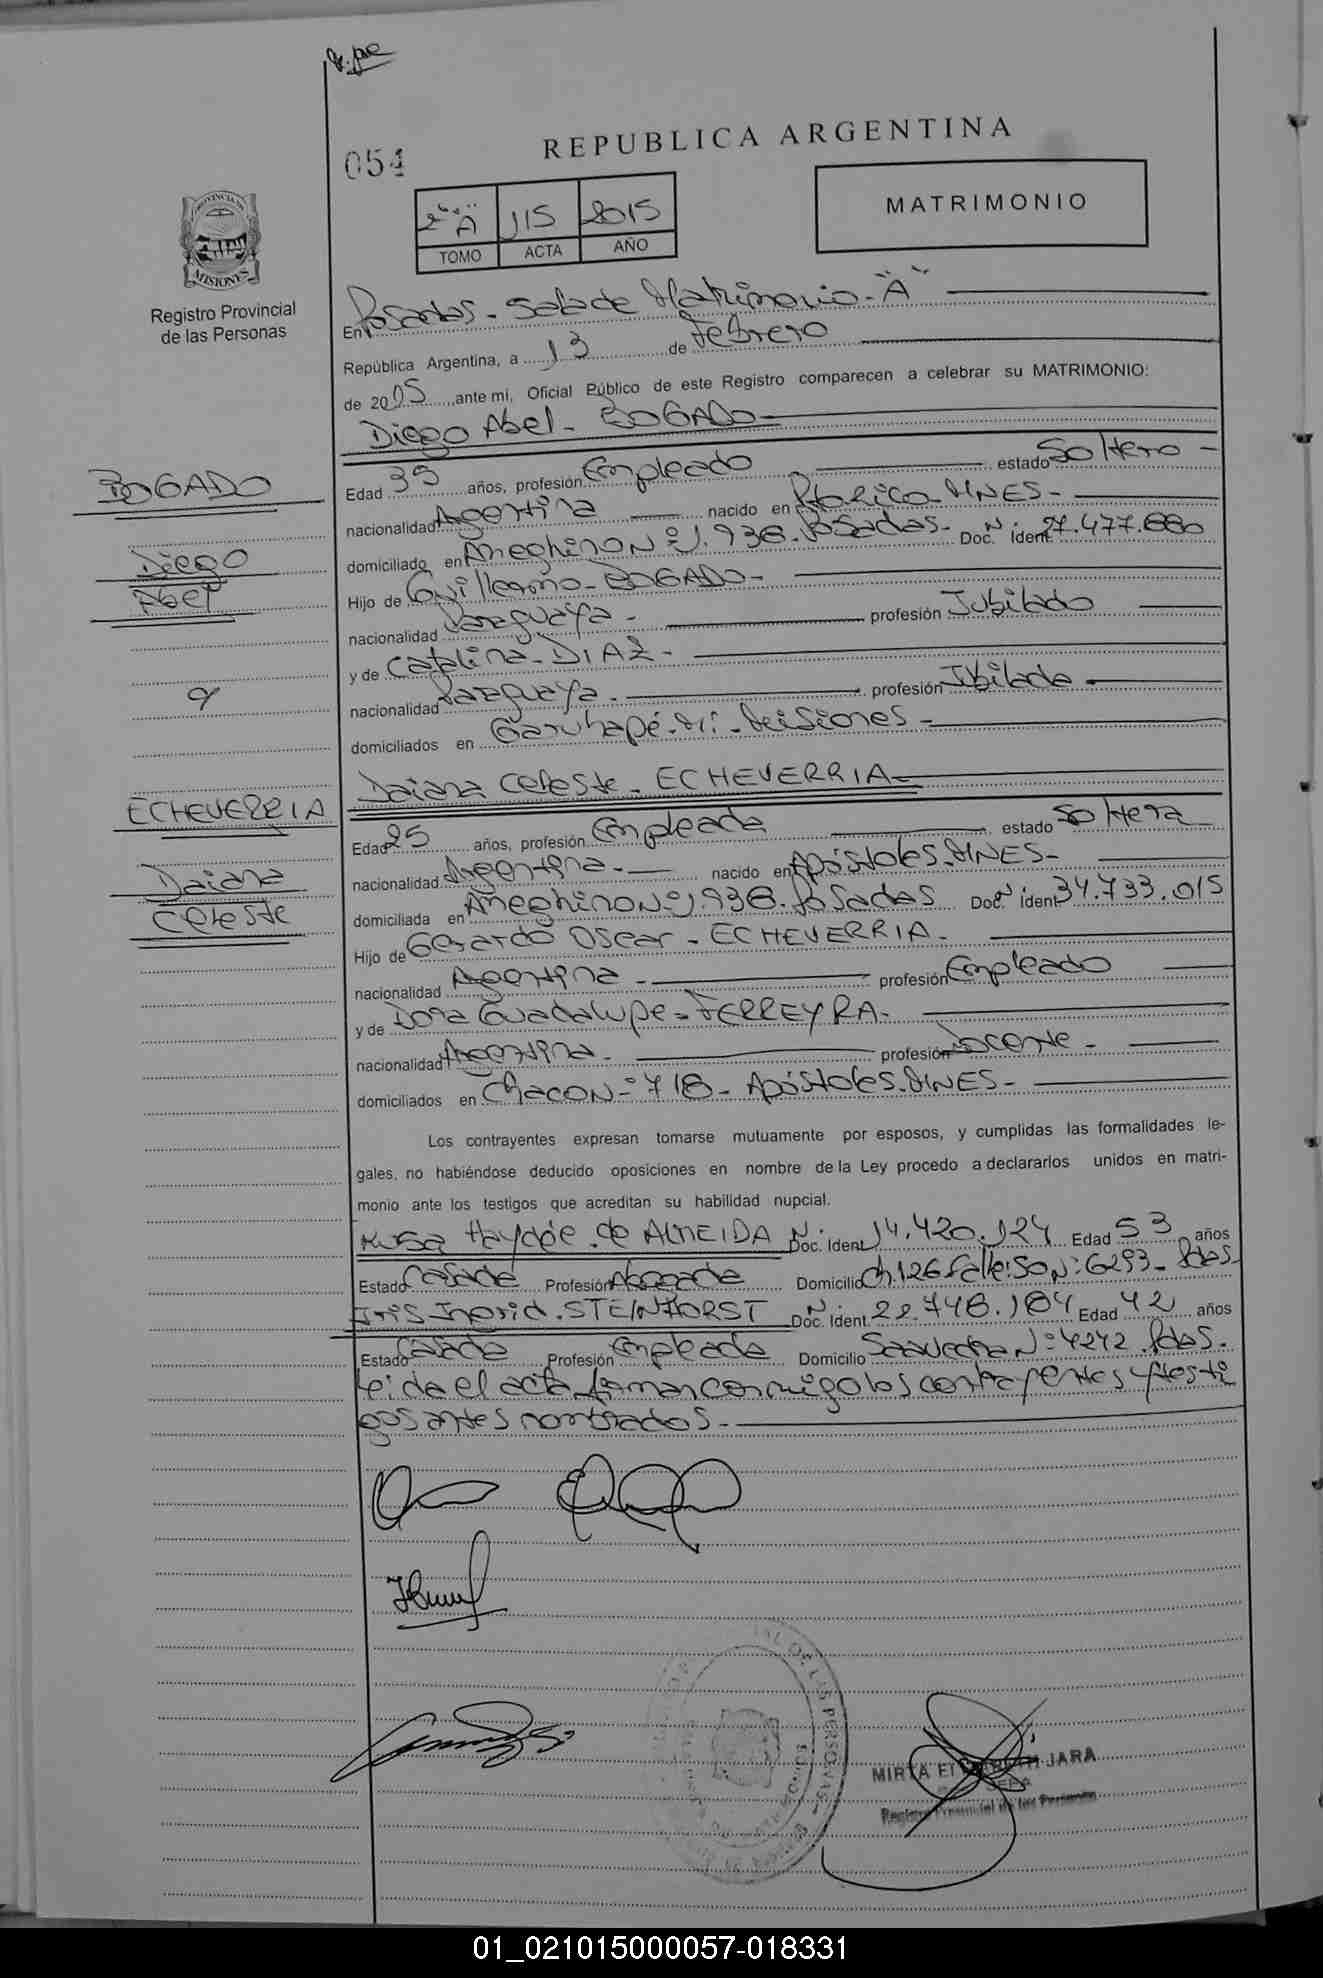 054
REPUBLICA ARGENTINA
MATRIMONIO
2º "A" 115 2015
TOMO ACTA AÑO
PROVINCIA DE
MISIONES
Registro Provincial
de las Personas
En Posadas - Sala de Matrimonio - "A"
República Argentina, a 13 de Febrero
de 2015 ante mi, Oficial Público de este Registro comparecen a celebrar su MATRIMONIO:
Diego Abel - BOGADO
BOGADO
Diego
Abel
Edad 35 años, profesión Empleado estado Soltero
nacionalidad Argentina nacido en MNES -
domiciliado en Ameghino Nº 1.936. Posadas - Doc. Ident Nº 27.477.880
Hijo de Guillermo - BOGADO -
nacionalidad Paraguaya - profesión Jubilado
y de Catalina - DIAZ -
nacionalidad Paraguaya - profesión Jubilada
domiciliados en Garuhapé - Mi - Misiones -
y
ECHEVERRIA
Daiana
Celeste
Daiana Celeste - ECHEVERRIA -
Edad 25 años, profesión Empleada estado Soltera
nacionalidad Argentina - nacido en Apóstoles. MNES -
domiciliada en Ameghino Nº 1.936. Posadas Doc. Ident Nº 34.733.015
Hijo de Gerardo Oscar - ECHEVERRIA -
nacionalidad Argentina - profesión Empleado
y de Dora Guadalupe - FERREYRA -
nacionalidad Argentina - profesión Docente -
domiciliados en Chaco Nº 718 - Apóstoles. MNES -
Los contrayentes expresan tomarse mutuamente por esposos, y cumplidas las formalidades le-
gales, no habiéndose deducido oposiciones en nombre de la Ley procedo a declararlos unidos en matri-
monio ante los testigos que acreditan su habilidad nupcial.
Haydée de ALMEIDA Doc. Ident Nº 14.420.124 Edad 53 años
Estado Casada Profesión Abogada Domicilio Ch. 126 Nº 6293 - Pdas.
Iris Ingrid. STEINHORST Doc. Ident Nº 22.748.184 Edad 42 años
Estado Casada Profesión Empleada Domicilio Saavedra Nº 4242. Pdas.
Leida el acta firman conmigo los contrayentes y testi
gos antes nombrados -
MIRTA JARA
JEFA
Registro Provincial de las Personas
01_021015000057-018331